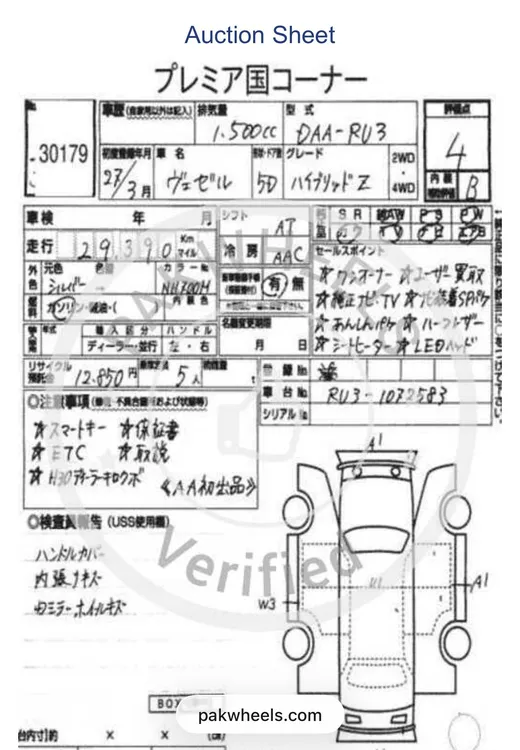 Auction Sheet
プレミア国コーナー
30179
車歴 (自家用以外は記入) 排気量 型式 評価点
1.500cc DAA-RU3 4
初度登録年月 車名 形状・ドア数 グレード 2WD
・
4WD
27/3月 ヴェゼル 5D ハイブリッドZ
B
車検 年 月 シフト AT
走行 29,390 Km
冷房 AAC
外色 元色 カラーNo
シルバー NH700M 内装色
燃料 ガソリン・軽油・(
有・無
名義変更期限
月 日
SR AW PS PW
セールスポイント
☆ワンオーナー ☆ユーザー買取
☆純正ナビ・TV
☆あんしんパケ ☆ハーフレザー
☆シートヒーター ☆LEDヘッド
年式 輸入区分 ハンドル
ディーラー・並行 左・右
リサイクル預託金 12.850円 乗車定員 5人 積載量 t
登録No
車台No RU3-1032583
シリアルNo
◎注意事項
☆スマートキー ☆保証書
☆ETC ☆取説
☆H30ディーラーキロクボ
《AA初出品》
◎検査員報告 (USS使用欄)
ハンドルカバー
内張りキズ
ミラーホイルキズ
A1
W3
A1
PAKWHEELS
Verified
BOX
pakwheels.com
台内寸)約 × ×